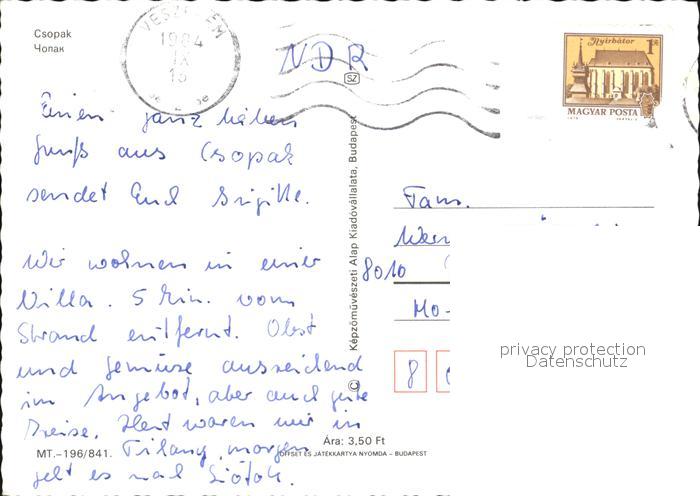 Csopak
Чопак
VESZPRÉM
1984
IX
15
NDR
SZ
Nyírbátor
1Ft
MAGYAR POSTA
Einen ganz lieben
Gruß aus Csopak
sendet Euch Brigitte.
Wir wohnen in einer
Villa. 5 Min. vom
Strand entfernt. Obst
und Gemüse ausreichend
im Angebot, aber auch gute
Preise. Heut waren wir in
Tihany, morgen
geht es mal Siófok.
© Képzőművészeti Alap Kiadóvállalata, Budapest
Fam.
8010
8
privacy protection
Datenschutz
Ára: 3,50 Ft
MT.–196/841.
OFFSET ÉS JÁTÉKKÁRTYA NYOMDA – BUDAPEST